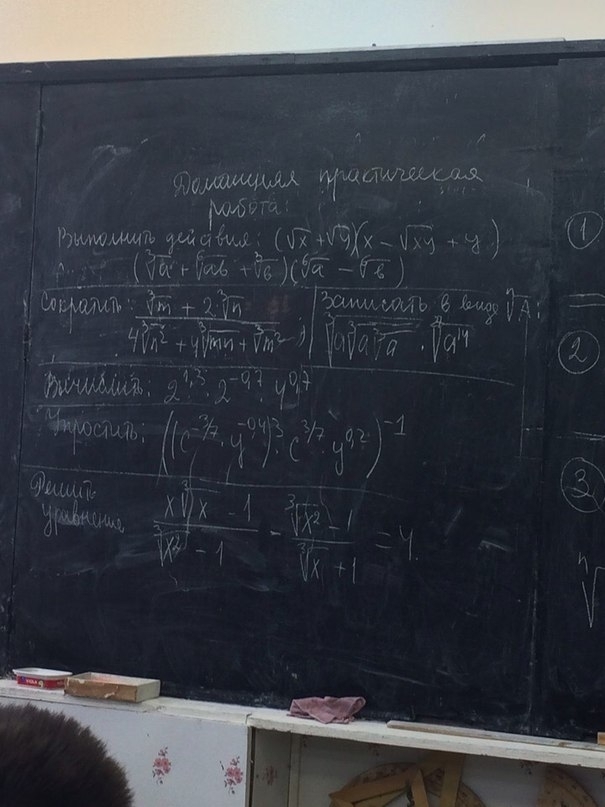 Домашняя практическая
работа:
Выполнить действия: (√x + √y)(x - √xy + y)
(∛a + ⁶√ab + ∛b)(⁶√a - ⁶√b)
Сократить: (∛m + 2∛n)/(4∛n² + 4∛mn + ∛m²)
Записать в виде ⁿ√A:
Вычислить: 2^1,3 · 2^-0,7 · 4^0,7
Упростить: ((c^-3/7 · y^-0,4)^3 · c^3/7 · y^0,2)^-1
Решить
уравнение (x∛x - 1)/(∛x² - 1) - (∛x² - 1)/(∛x + 1) = 4.
1
2
3
ⁿ√